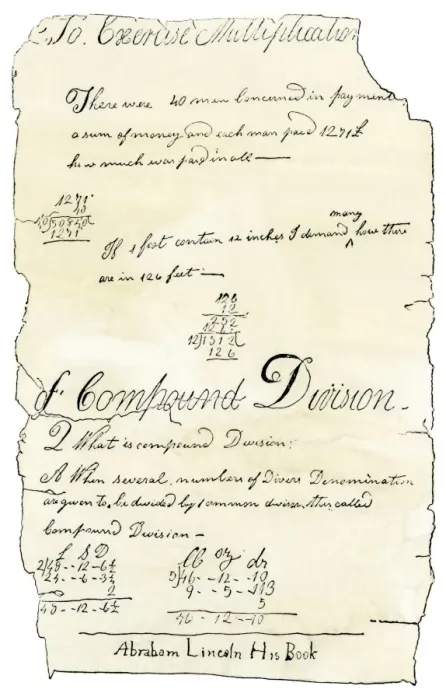 To Exercise Multiplication
There were 40 men Concerned in payment
a sum of money and each man paid 1271£
how much was paid in all —
1271
40
40)50840
1271
many
If 1 foot contain 12 inches I demand ^ how there
are in 126 feet —
126
12
252
126
12)1512
126
of Compound Division -
Q What is compound Division?
A When several numbers of Divers Denomination
are given to be divided by 1 common divisor this called
Compound Division —
£ S D lb oz dr
46--12--10
2
5
46-12-10
Abraham Lincoln His Book